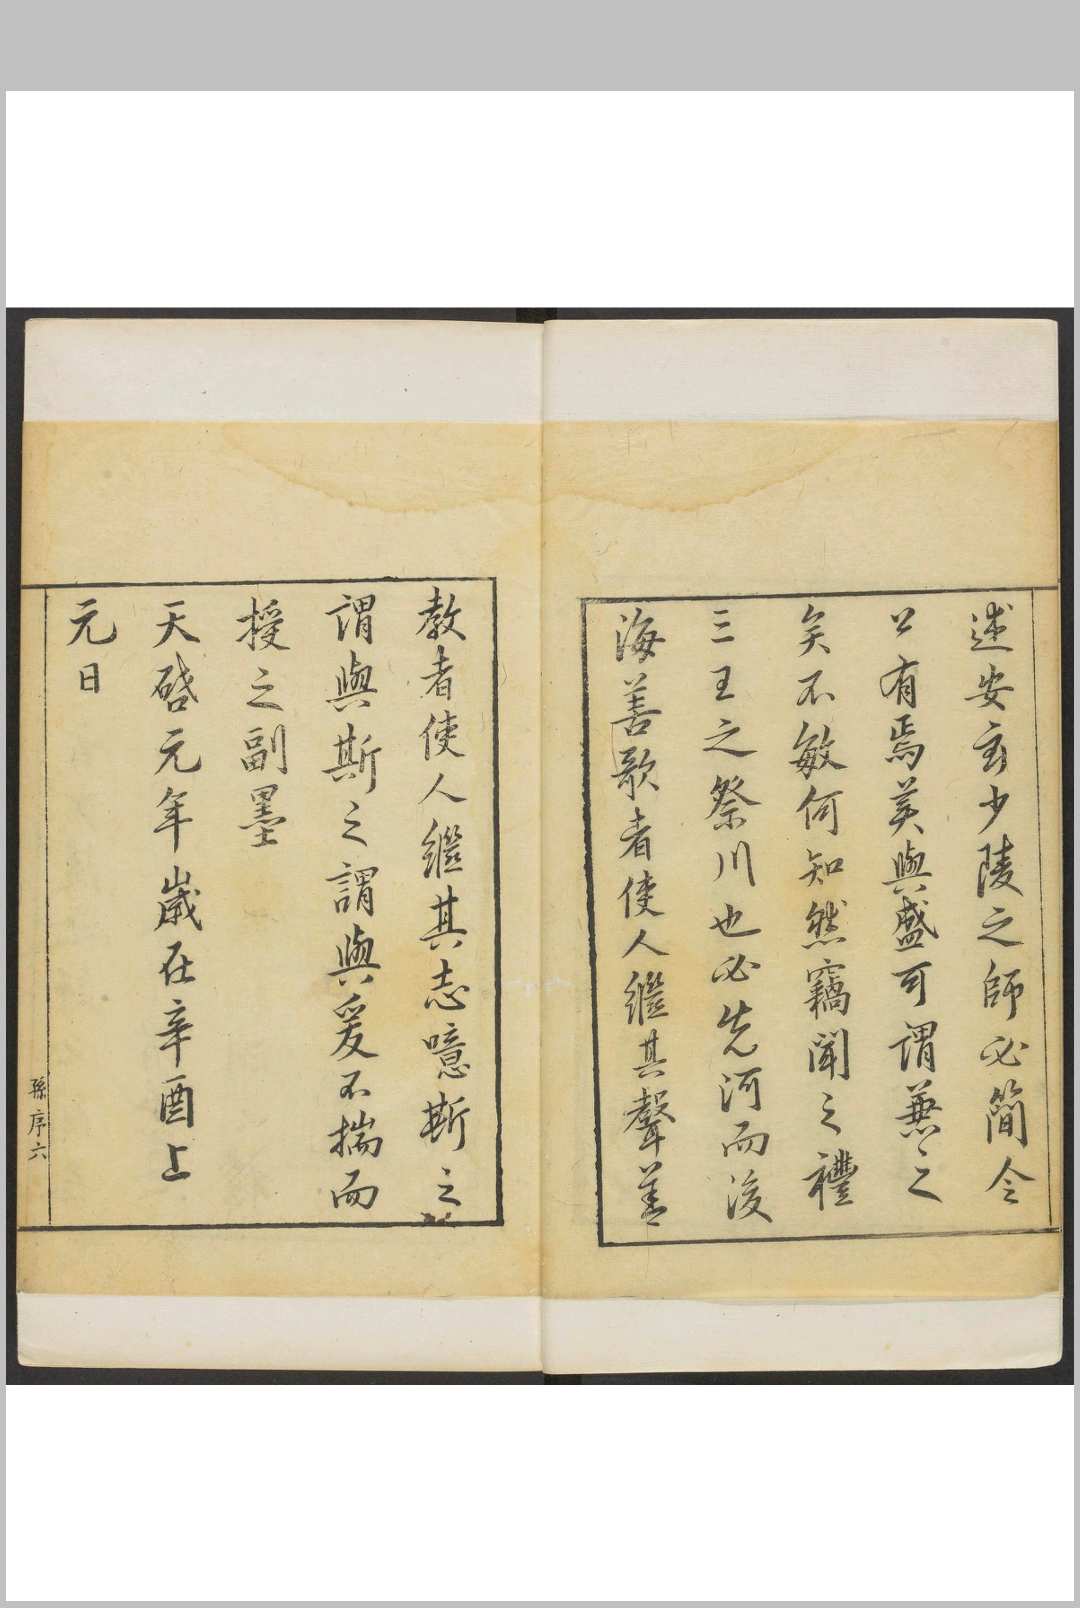 述安玄少陵之師必簡今
公有焉美與盛可謂兼之
矣不敏何知然竊聞之禮
三王之祭川也必先河而後
海善歌者使人繼其聲善
教者使人繼其志噫斯之
謂與斯之謂與爰不揣而
授之副墨
天啓元年歲在辛酉上
元日
孫序六